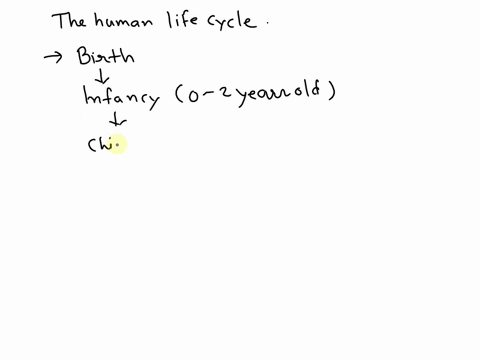 The human life cycle.
→ Birth
↓
Infancy (0-2 year old)
↓
Chi